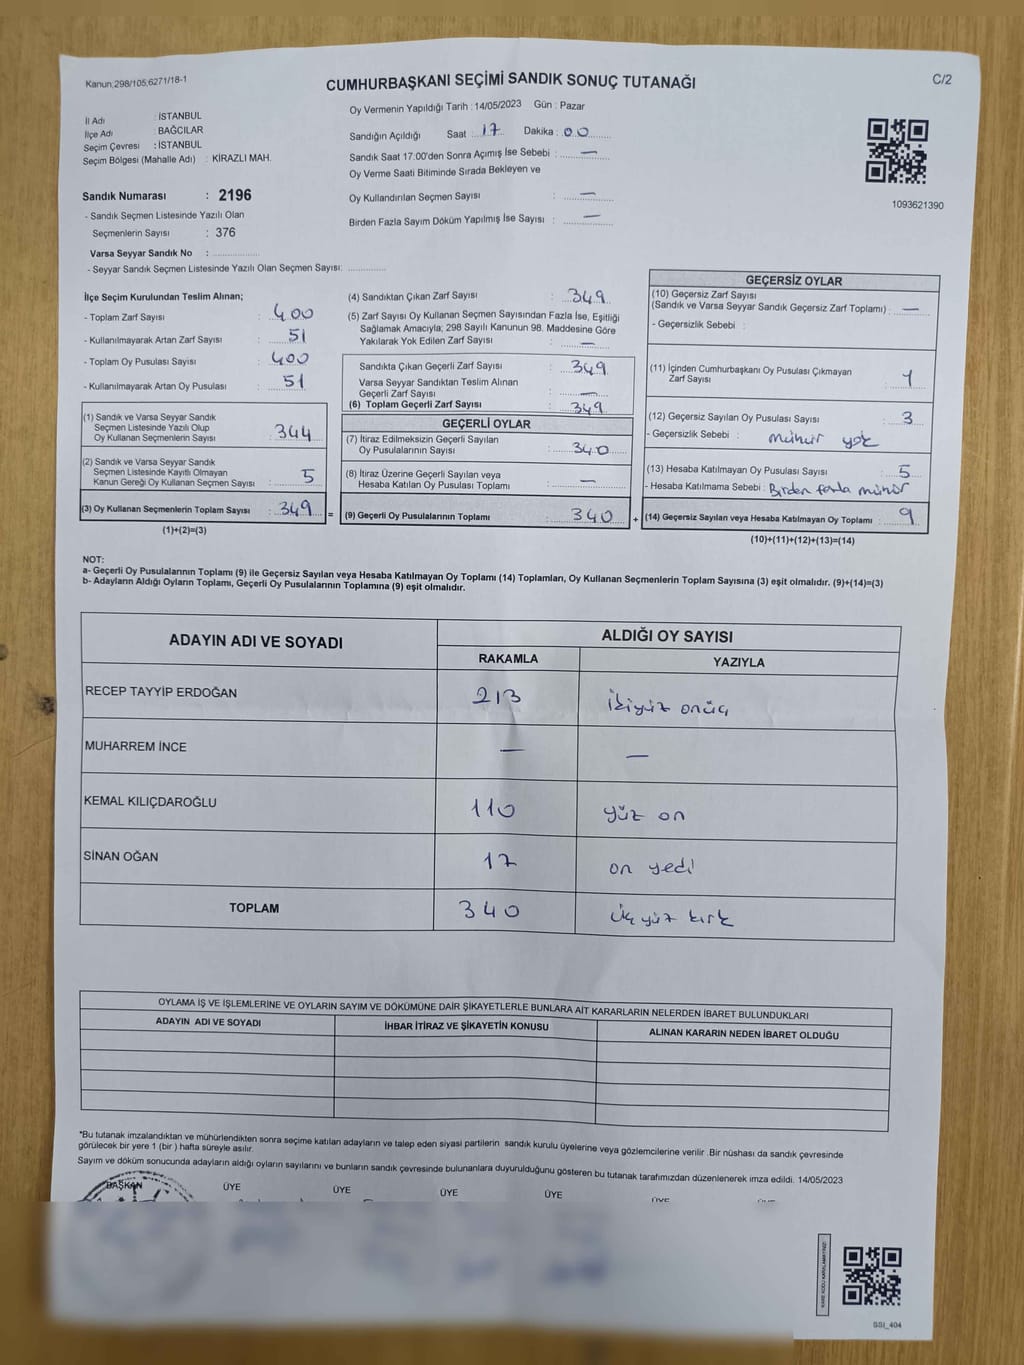 Kanun:298/105,6271/18-1
CUMHURBAŞKANI SEÇİMİ SANDIK SONUÇ TUTANAĞI
C/2
İl Adı : İSTANBUL
İlçe Adı : BAĞCILAR
Seçim Çevresi : İSTANBUL
Seçim Bölgesi (Mahalle Adı) : KİRAZLI MAH.
Oy Vermenin Yapıldığı Tarih : 14/05/2023 Gün : Pazar
Sandığın Açıldığı Saat : 17 Dakika : 00
Sandık Saat 17:00'den Sonra Açımış İse Sebebi : —
Oy Verme Saati Bitiminde Sırada Bekleyen ve
Oy Kullandırılan Seçmen Sayısı : —
Birden Fazla Sayım Döküm Yapılmış İse Sayısı : —
1093621390
Sandık Numarası : 2196
- Sandık Seçmen Listesinde Yazılı Olan
Seçmenlerin Sayısı : 376
Varsa Seyyar Sandık No :
- Seyyar Sandık Seçmen Listesinde Yazılı Olan Seçmen Sayısı:
İlçe Seçim Kurulundan Teslim Alınan;
- Toplam Zarf Sayısı : 400
- Kullanılmayarak Artan Zarf Sayısı : 51
- Toplam Oy Pusulası Sayısı : 400
- Kullanılmayarak Artan Oy Pusulası : 51
(1) Sandık ve Varsa Seyyar Sandık
Seçmen Listesinde Yazılı Olup
Oy Kullanan Seçmenlerin Sayısı : 344
(2) Sandık ve Varsa Seyyar Sandık
Seçmen Listesinde Kayıtlı Olmayan
Kanun Gereği Oy Kullanan Seçmen Sayısı : 5
(3) Oy Kullanan Seçmenlerin Toplam Sayısı : 349
(1)+(2)=(3)
(4) Sandıktan Çıkan Zarf Sayısı : 349
(5) Zarf Sayısı Oy Kullanan Seçmen Sayısından Fazla İse, Eşitliği
Sağlamak Amacıyla; 298 Sayılı Kanunun 98. Maddesine Göre
Yakılarak Yok Edilen Zarf Sayısı : —
Sandıkta Çıkan Geçerli Zarf Sayısı : 349
Varsa Seyyar Sandıktan Teslim Alınan
Geçerli Zarf Sayısı : —
(6) Toplam Geçerli Zarf Sayısı : 349
GEÇERLİ OYLAR
(7) İtiraz Edilmeksizin Geçerli Sayılan
Oy Pusulalarının Sayısı : 340
(8) İtiraz Üzerine Geçerli Sayılan veya
Hesaba Katılan Oy Pusulası Toplamı : —
= (9) Geçerli Oy Pusulalarının Toplamı : 340 +
GEÇERSİZ OYLAR
(10) Geçersiz Zarf Sayısı
(Sandık ve Varsa Seyyar Sandık Geçersiz Zarf Toplamı) : —
- Geçersizlik Sebebi :
(11) İçinden Cumhurbaşkanı Oy Pusulası Çıkmayan
Zarf Sayısı : 1
(12) Geçersiz Sayılan Oy Pusulası Sayısı : 3
- Geçersizlik Sebebi : mühür yok
(13) Hesaba Katılmayan Oy Pusulası Sayısı : 5
- Hesaba Katılmama Sebebi : Birden fazla mühür
(14) Geçersiz Sayılan veya Hesaba Katılmayan Oy Toplamı : 9
(10)+(11)+(12)+(13)=(14)
NOT:
a- Geçerli Oy Pusulalarının Toplamı (9) ile Geçersiz Sayılan veya Hesaba Katılmayan Oy Toplamı (14) Toplamları, Oy Kullanan Seçmenlerin Toplam Sayısına (3) eşit olmalıdır. (9)+(14)=(3)
b- Adayların Aldığı Oyların Toplamı, Geçerli Oy Pusulalarının Toplamına (9) eşit olmalıdır.
ADAYIN ADI VE SOYADI
ALDIĞI OY SAYISI
RAKAMLA YAZIYLA
RECEP TAYYİP ERDOĞAN 213 ikiyüz onüç
MUHARREM İNCE — —
KEMAL KILIÇDAROĞLU 110 yüz on
SİNAN OĞAN 17 on yedi
TOPLAM 340 üçyüz kırk
OYLAMA İŞ VE İŞLEMLERİNE VE OYLARIN SAYIM VE DÖKÜMÜNE DAİR ŞİKAYETLERLE BUNLARA AİT KARARLARIN NELERDEN İBARET BULUNDUKLARI
ADAYIN ADI VE SOYADI İHBAR İTİRAZ VE ŞİKAYETİN KONUSU ALINAN KARARIN NEDEN İBARET OLDUĞU
*Bu tutanak imzalandıktan ve mühürlendikten sonra seçime katılan adayların ve talep eden siyasi partilerin sandık kurulu üyelerine veya gözlemcilerine verilir .Bir nüshası da sandık çevresinde
görülecek bir yere 1 (bir ) hafta süreyle asılır.
Sayım ve döküm sonucunda adayların aldığı oyların sayılarını ve bunların sandık çevresinde bulunanlara duyurulduğunu gösteren bu tutanak tarafımızdan düzenlenerek imza edildi. 14/05/2023
BAŞKAN ÜYE ÜYE ÜYE ÜYE ÜYE ÜYE
SSI_404